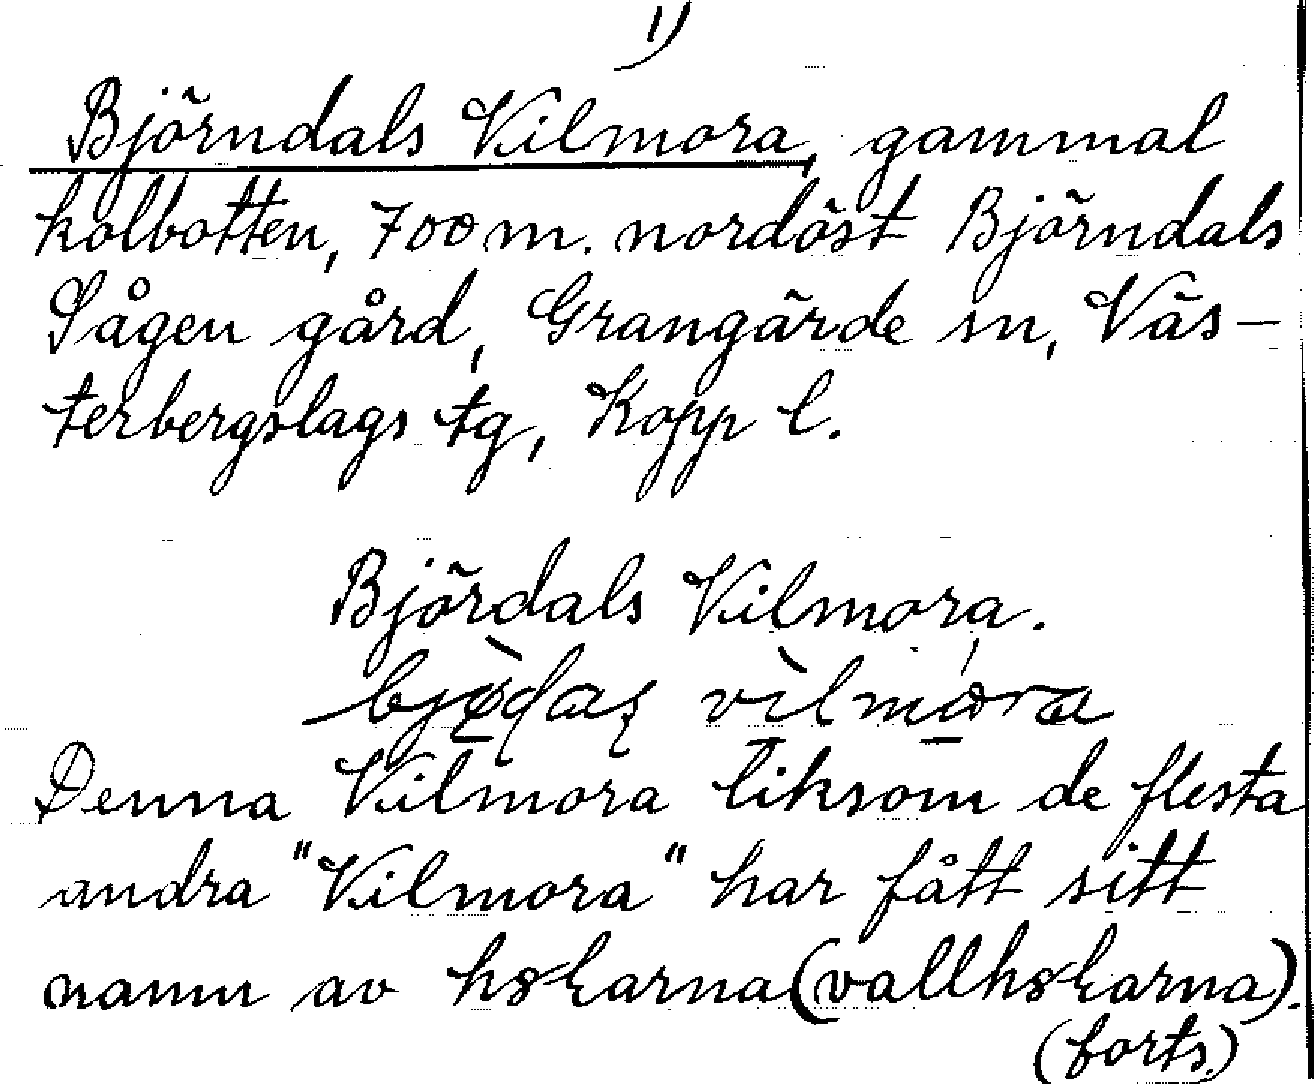 1)
Björndals Vilmora, gammal
kolbotten, 700 m. nordöst Björndals
Sågen gård, Grangärde sn, Väs-
terbergslags tg, Kopp l.
Björdals Vilmora.
vilmora
Denna Vilmora liksom de flesta
andra "Vilmora" har fått sitt
namn av
(forts.)